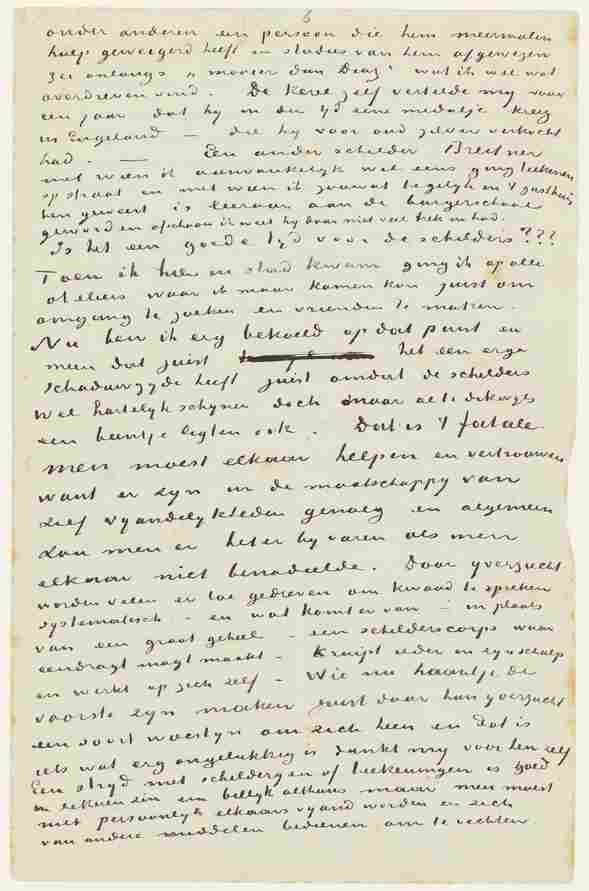 6
onder anderen een persoon die hem meermalen
hulp geweigerd heeft en studies van hem afgewezen
zei onlangs „mooier dan Diaz" wat ik wel wat
overdreven vind. De Kock zelf vertelde mij voor
een jaar dat hij in der tyd eene medalje kreeg
in Engeland – die hij voor oud zilver verkocht
had. — Een ander schilder Breitner
met wien ik aanvankelyk wel eens ging teekenen
op straat en met wien ik zoowat tegelyk in 't gasthuis
ben geweest is leeraar aan de burgerschool
geworden ofschoon ik weet hy daar niet veel trek in had.
Is het een goede tyd voor de schilders???
Toen ik hier in stad kwam ging ik op alle
ateliers waar ik maar komen kon juist om
omgang te zoeken en vrienden te maken.
Nu ben ik erg bekoeld op dat punt en
meen dat juist het een erge
schaduwzyde heeft juist omdat de schilders
wel hartelyk schynen doch maar al te dikwyls
een beentje ligten ook. Dat is 't fatale.
Men moest elkaar helpen en vertrouwen
want er zyn in de maatschappy van
zelf vyandelykheden genoeg en algemeen
zou men er beter by varen als men
elkaar niet benadeelde. Door yverzucht
worden velen er toe gedreven om kwaad te spreken
systematisch – en wat komt er van – in plaats
van een groot geheel – een schilderscorps waar
eendragt magt maakt – kruipt ieder in zyn schelp
en werkt op zich zelf – Wie nu haantje de
voorste zyn maken juist door hun yverzucht
een soort woestyn om zich heen en dat is
iets wat erg ongelukkig is dunkt my voor hen zelf
Een stryd met schilderyen of teekeningen is goed
in zekeren zin en billyk althans maar men moest
niet persoonlyk elkaars vyand worden en zich
van andere middelen bedienen om te vechten.